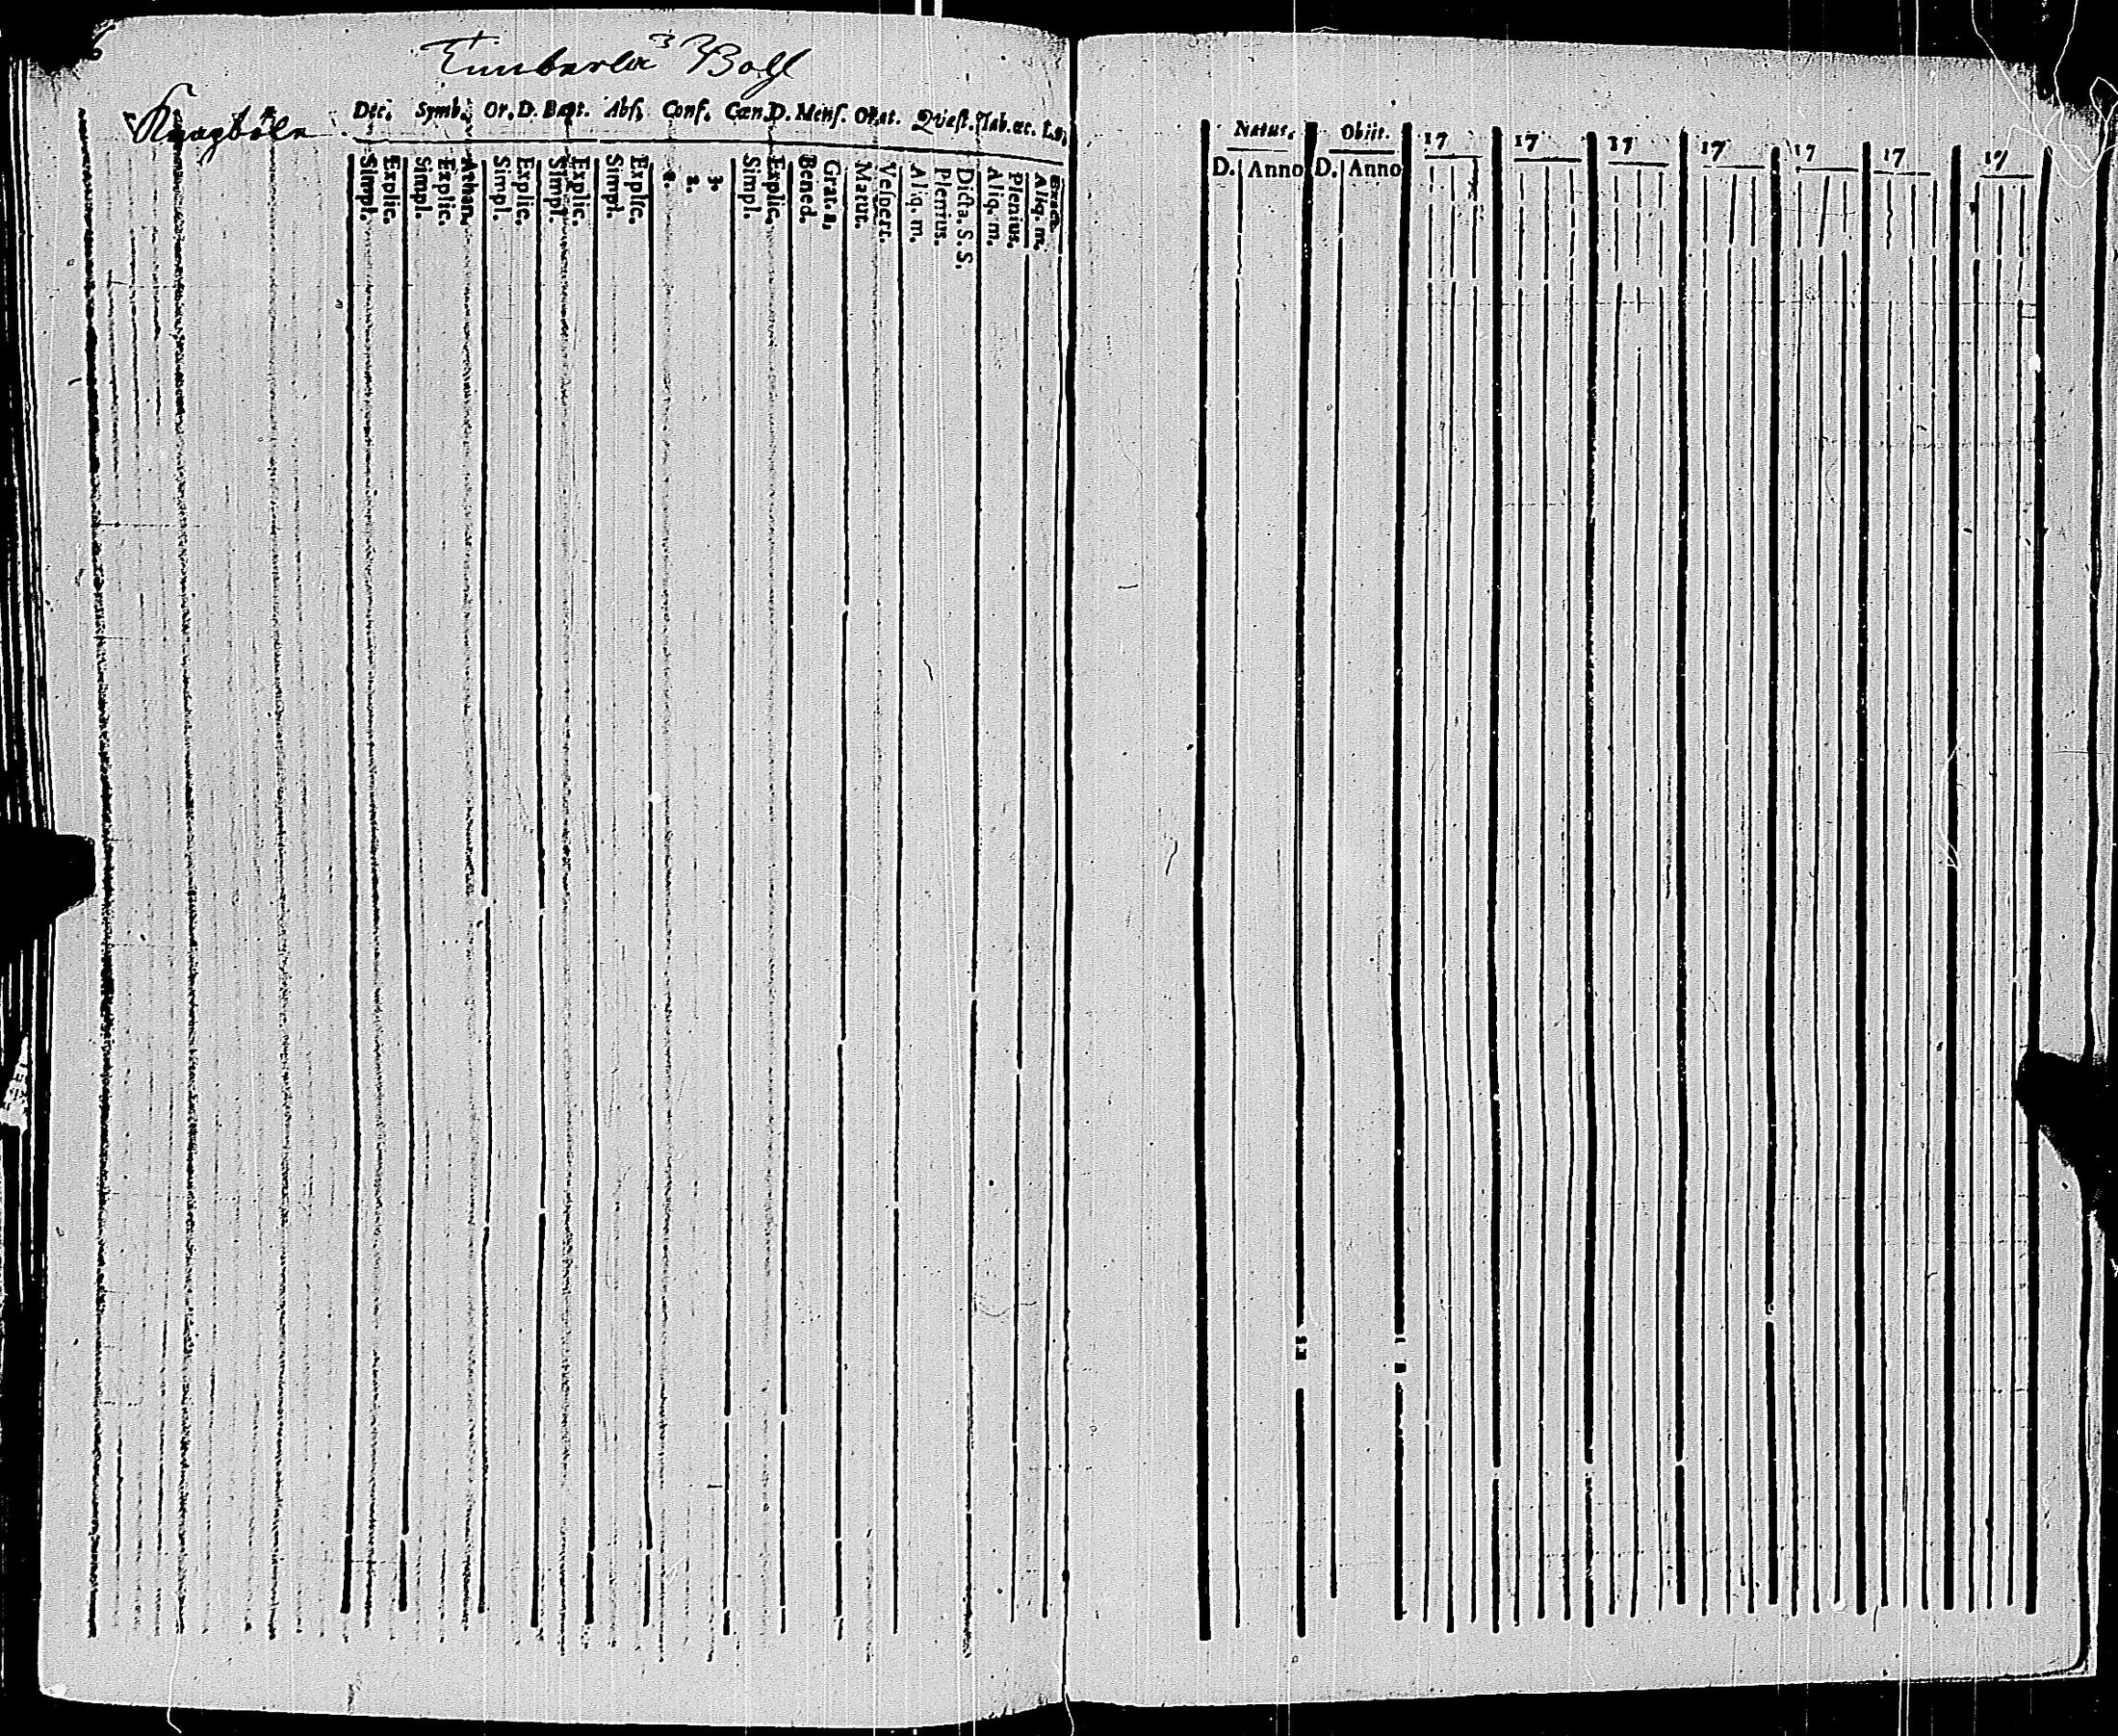 Timberla Bolf
Knagböle
Dec. Symb. Or. D. Bapt. Abs. Conf. Cœn. D. Mens. Orat. Quæst. Tab. œc.
Simpl. Explic. Simpl. Explic. Athan. Simpl. Explic. Simpl. Explic. Simpl. Explic. 1. 2. 3. Simpl. Explic. Bened. Grat. a. Matut. Vespert. Aliq. m. Plenius. Dicta. S. S. Aliq. m. Plenius. Aliq. m.
Natus. Obiit. 17 17 17 17 17 17 17
D. Anno D. Anno